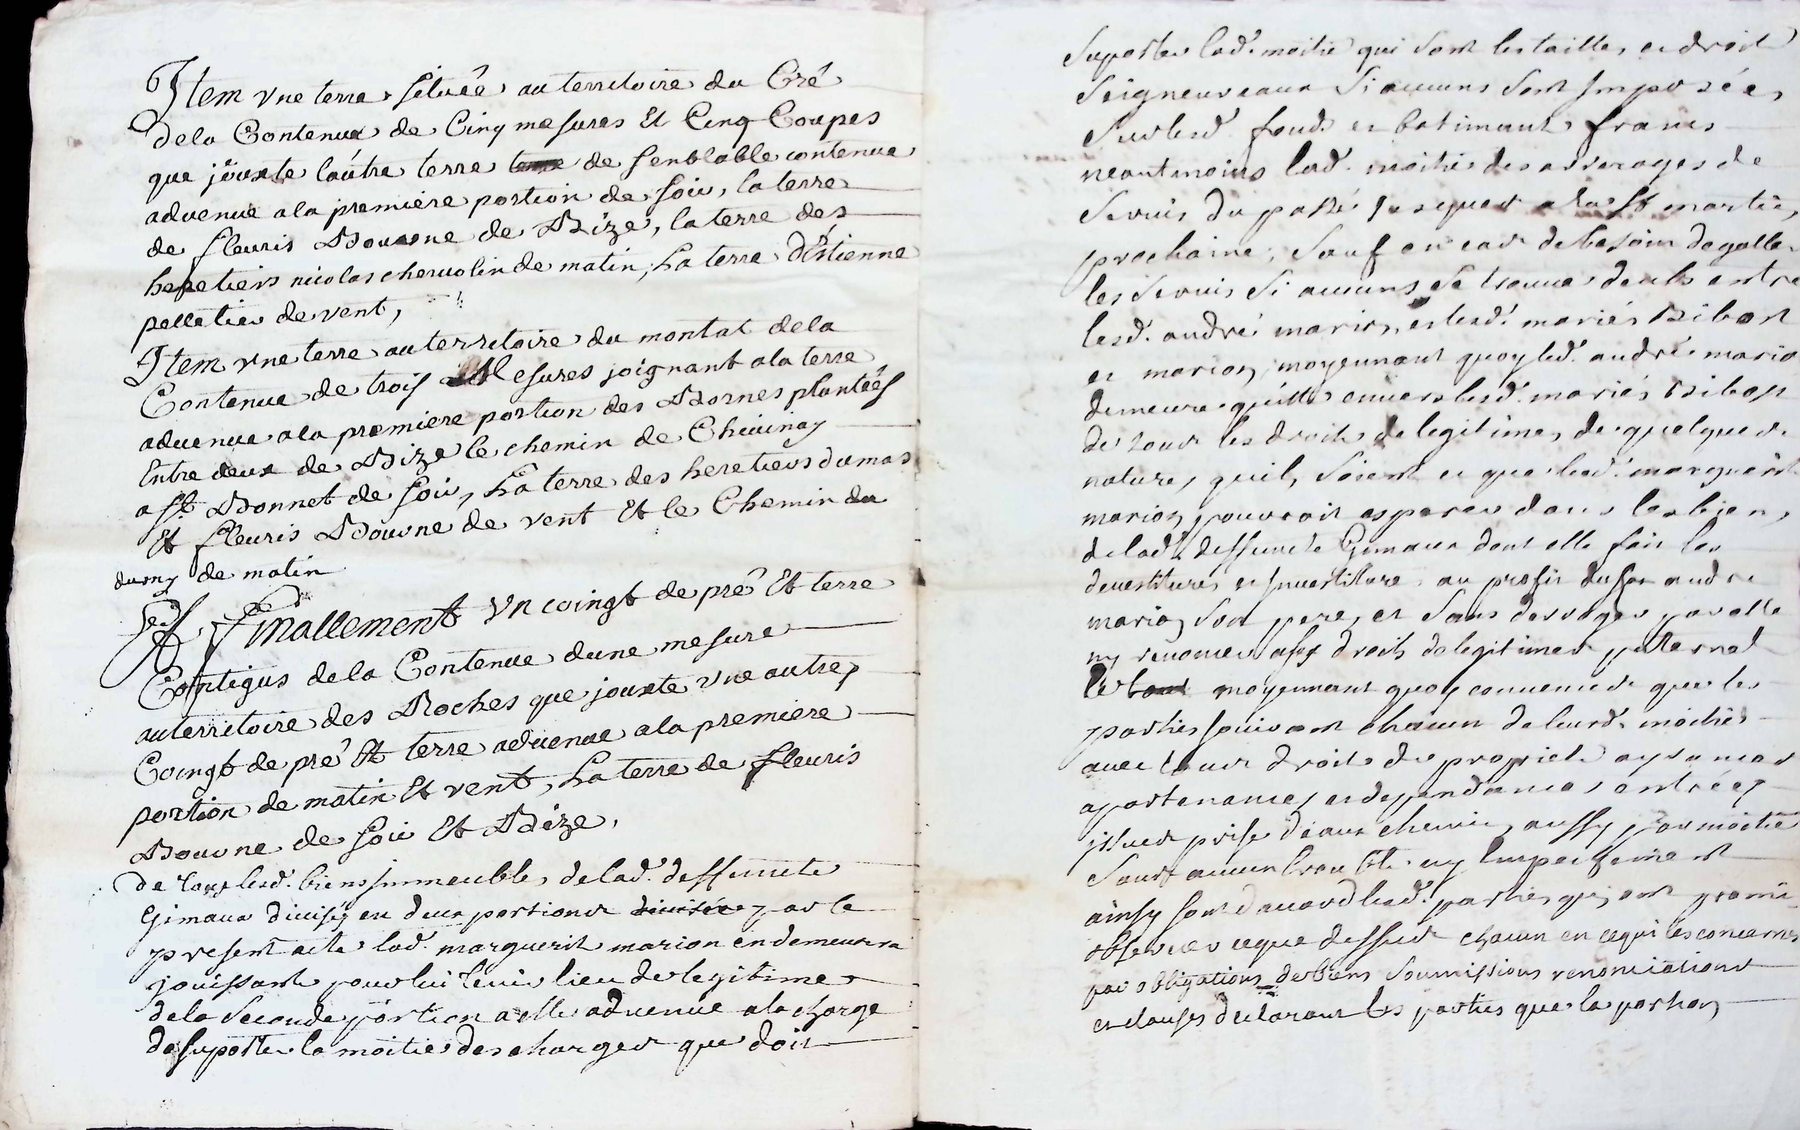 Item vne terre située au territoire du Cré
dela Contenue de Cinq mesures Et Cinq Coupes
que jouxte lautre terre de senblable contenue
aduenue ala premiere portion de soir, la terre
de fleuris Bouvne de Bize, la terre des
heretiers nicolas cheruolin de matin, La terre dEstienne
pelletier de vent,
Item vne terre au territoire du montat dela
Contenue de trois Mesures joignant ala terre
aduenue ala premiere portion des Bornes plantées
Entre deux de Bize le chemin de Chiuinay
a st Bonnet de soir, La terre des heretiers dumas
Et fleuris Bouvne de vent Et le Chemin du
de matin
Finallement vn coingt de pré Et terre
Contigus dela Contenue dune mesure
au territoire des Roches que jouxte vne autre
Coingt de pré Et terre aduenue ala premiere
portion de matin Et vent, La terre de fleuris
Bouvne de soir Et Bize,
de tous lesd. biens immeubles de lad. deffuncte
Gimaux diuisés en deux portions par le
present acte lad. marguerite marion en demeurera
jouissante pour lui tenir lieu de legitime
dela Seconde portion a elle aduenue ala charge
de suporter la moitié des charges que doit
suporter lad. moitié qui sont les tailles et droits
Seigneureaux Si aucuns sont Imposées
Sur lesd. fonds et batiments francs
neantmoins lad. moitié des arrerages de
Seruis du passé jusques ala St martin
prochaine, Sauf en cas de besoin degaller
les seruis Si aucuns se trouue deubs entre
lesd. andré marion et lesd. mariés Ribost
et marion, moyennant quoy led. andré marion
demeure quitte enuers lesd. mariés Ribost
de tous les droits de legitimes de quelques
natures quils soient et que lad. marguerite
marion pouuoit esperer dans les biens
de lad. deffuncte Gimaux dont elle fait les
deuestitures et Inuestitures au profit dud. andré
marion Son pere, et Sans desroger par elle
ny renoncer a ses droits de legitimes paternel
moyennant quoy conuenu que les
parties jouiront chacun de leursd. moitiés
auec tous droits de proprieté aysances
apartenances et dependances entrées
issues prise deaux chemins aussy par moitié
Sans aucun trouble ny Empechement
ainsy sont daccord lesd. parties qui ont promis
obseruer ce que dessus chacun en ce qui les concernes
par obligations de biens Soumissions renonciations
et clauses declarant les parties que la portion